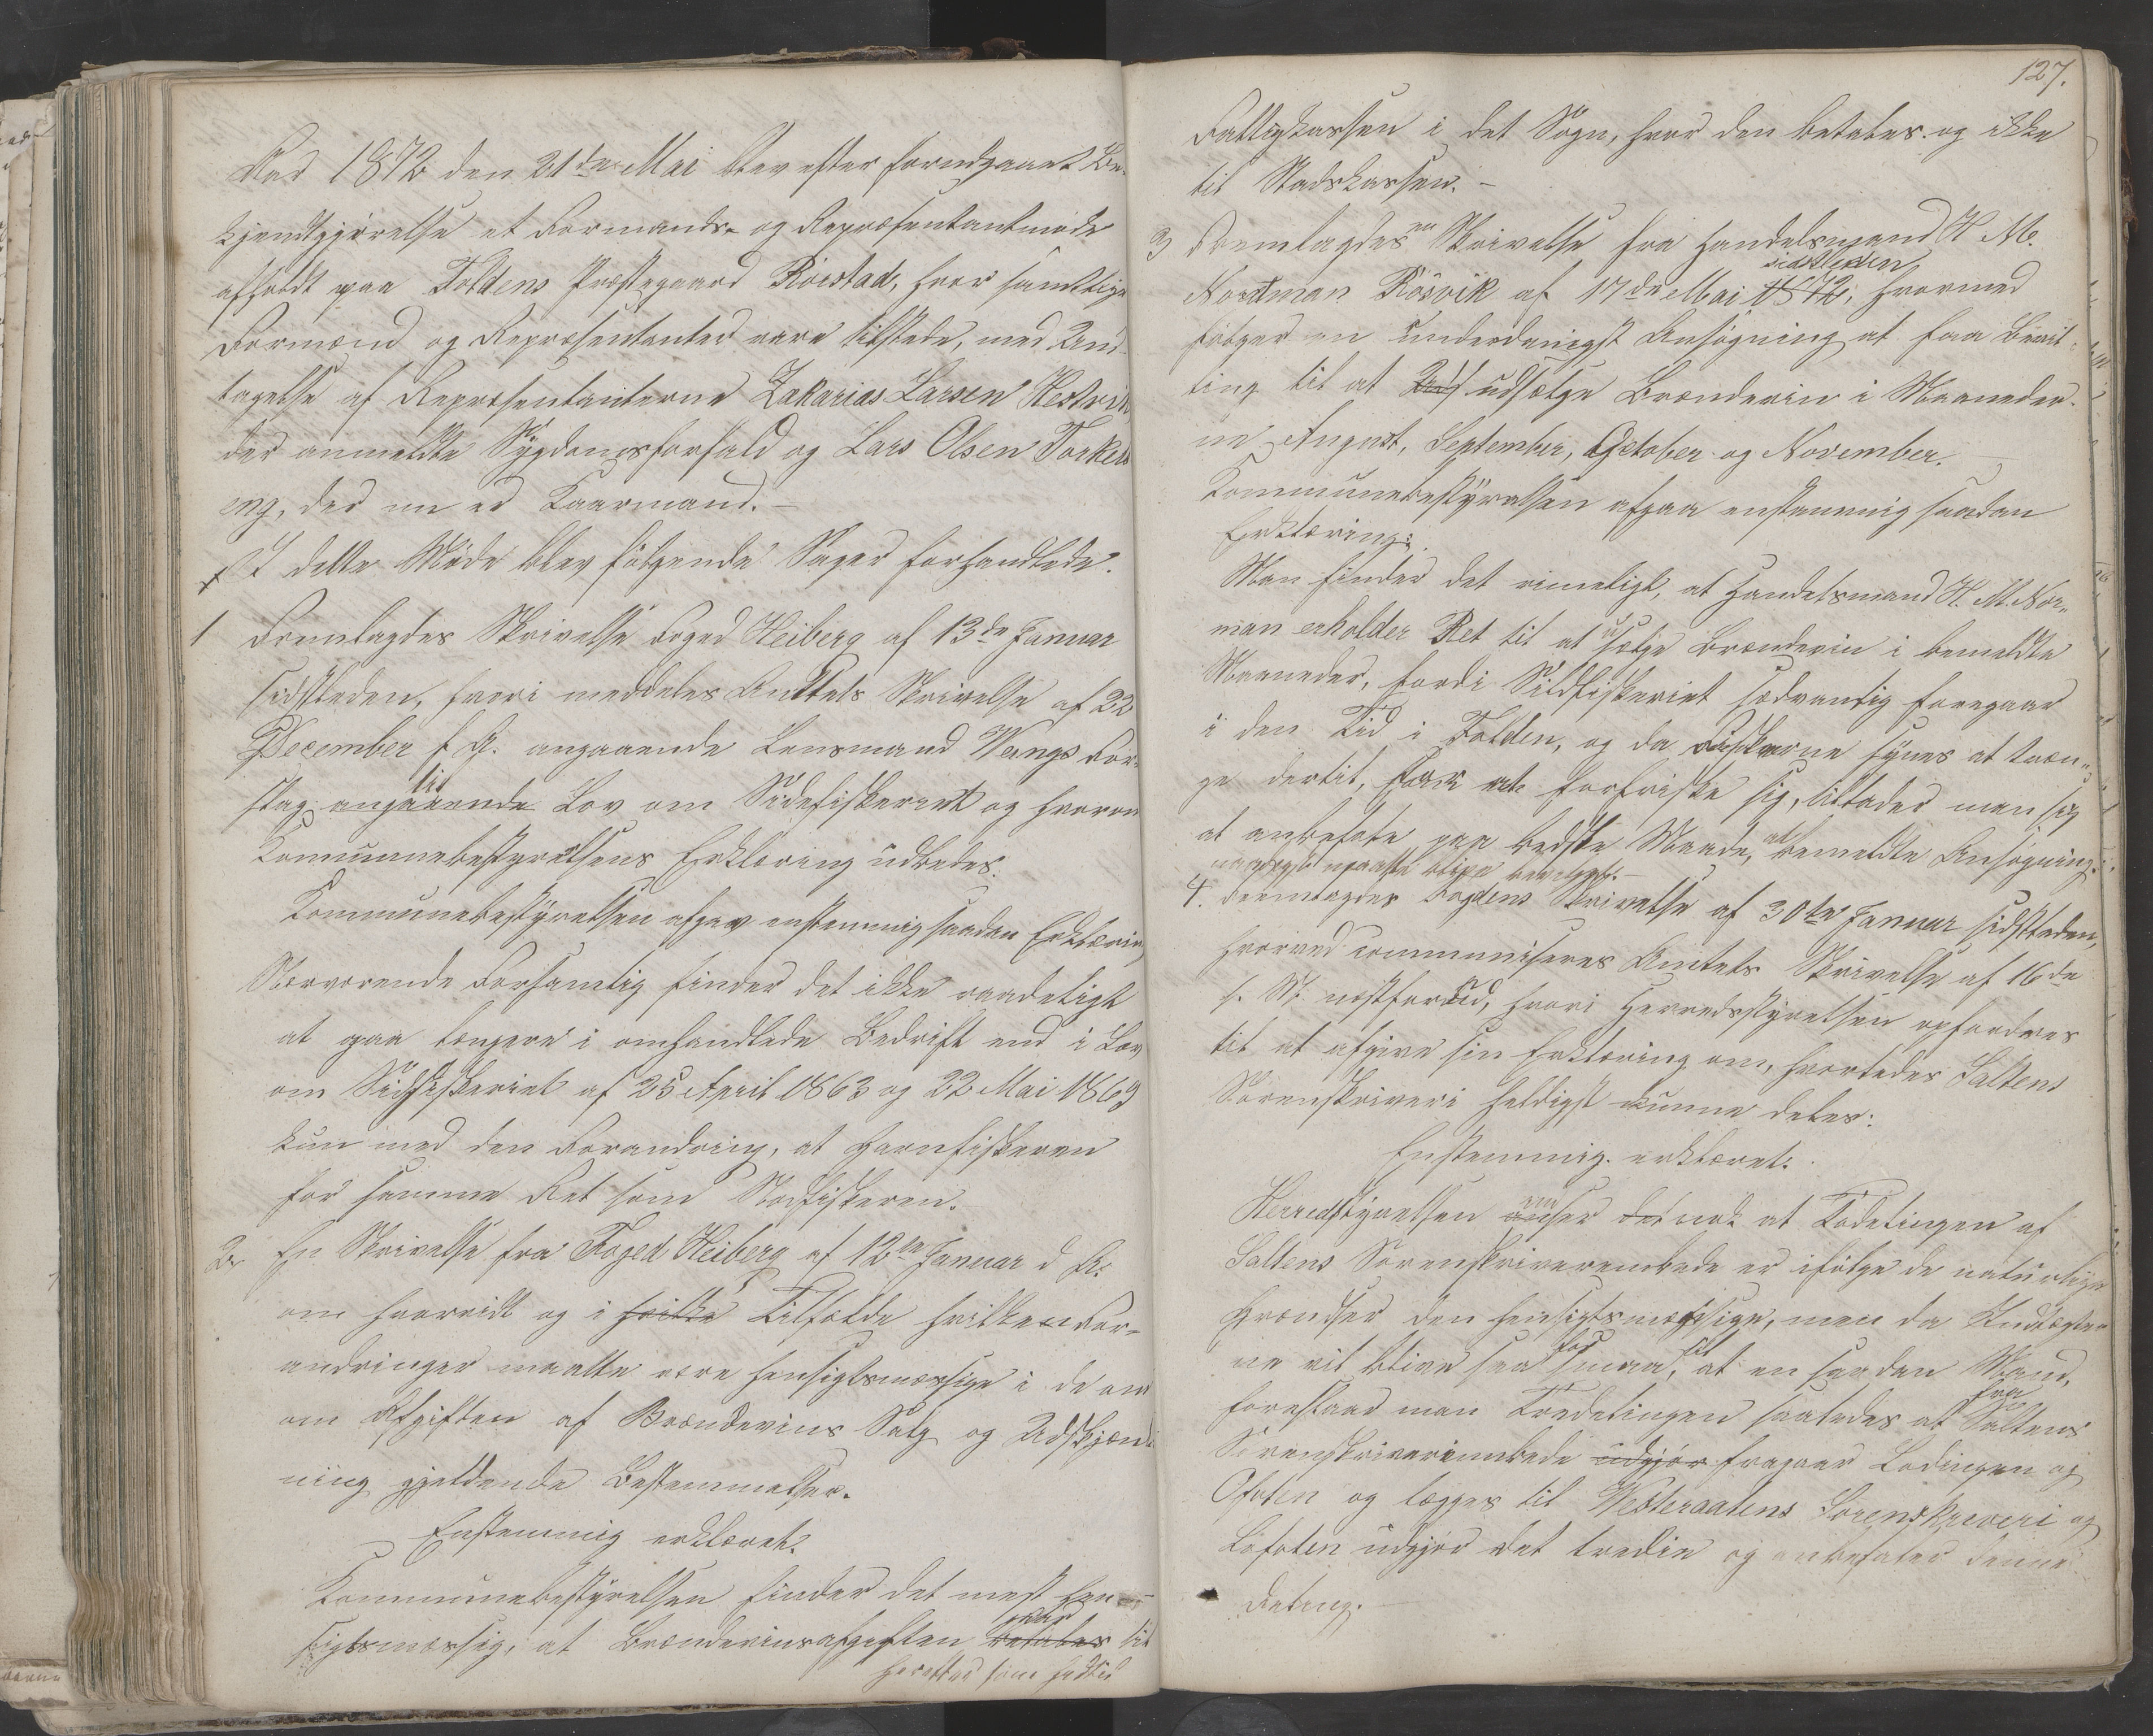 Aar 1872 den 21de Mai blev efter forudgaaet Be-
kjendtgjørelse et Formands- og Repræsentantmøde
afholdt paa Foldens Præstegaard Röirstad, hvor samtlige
Formænd og Repræsentanter vare tilstede, med Und-
tagelse af Repræsentanterne Zakarias Larsen Hestvik
der anmeldte Sygdomsforfald og Lars Olsen Torkels
eng, der nu er Kaarmand. -
I dette Møde blev følgende Sager forhandlede.
1 Fremlagdes Skrivelse Foged Heiberg af 13de Januar
sidstleden, hvori meddeles Amtets Skrivelse af 22
December f. A. angaaende Lensmand Wangs For-
til
slag angaaende Lov om Sildefiskeriet og hvorom
Kommunebestyrelsens Erklæring udbedes.
Kommunebestyrelsen afgav enstemmig saadan Erklæring
Nærværende Forsamling finder det ikke raadeligt
at gaa længere i omhandlede Bedrift end i Lov
om Sildfiskeriet af 25 April 1863 og 22 Mai 1869
kun med den Forandring, at Garnfiskeren
får samme Ret som Nodfiskeren.
2. En Skrivelse fra Foged Heiberg af 12te Januar d. A.
om hvorvidt og i hvilke Tilfælde hvilken For-
andringer maatte være hensigtsmæssige i de
om Afgiften af Brændevins Salg og Udskjænk
ning gjeldende Bestemmelser.
Enstemmig erklæret.
Kommunebestyrelsen finder det mest hen-
sigtsmæssig, at Brændevinsafgiften betales til
herefter som hidtil
127.
Fattigkassen i det Sogn, hvor den betales og ikke
til Stadskassen. -
3 Fremlagdes en Skrivelse fra Handelsmand H. M.
sidstleden
Nordtman Rösvik af 17de Mai 1872, hvormed
følger en underdanigst Ansøgning at faa Bevil-
ling til at Uds udsælge Brændevin i Maaneder-
ne August, September, October og November.
Kommunebestyrelsen afgav enstemmig saadan
Erklæring:
Man finder det rimeligt, at Handelsmand H. M. Nor-
man erholder Ret til at sælge Brændevin i bemeldte
Maaneder, fordi Sildfiskeriet sædvanlig foregaar
i den Tid i Folden, og da Fiskerne synes at træn-
ge dertil, for at forfriske sig, tillader man sig
at anbefale paa bedste Maade, at bemeldte Ansøgning
maatte blive bevilget. -
4. Fremlagdes Fogdens Skrivelse af 30te Januar sidstleden,
hvorved communiseres Amtets Skrivelse af 16de
s. M. næstforud, hvori Herredsstyrelsen opfordres
til at afgive sin Erklæring om, hvorledes Saltens
Sorenskriveri heldigst kunne deles:
Enstemmig erklæret:
Herredsstyrelsen anser det nok at Todelingen af
Saltens Sorenskriverembede er ifølge de naturlige
Grændser den hensigtsmæssige, men da Indtægter
for til
ne vil blive saa smaa, at en saadan Mand,
foreslaar man Tredelingen saaledes at fra Saltens
Sorenskriverimbede udgjør fragaar Lodingen og
Ofoten og lægges til Vesteraalens Sorenskriveri og
Lofoten udgjør det tredie og anbefaler denne
Deling. -